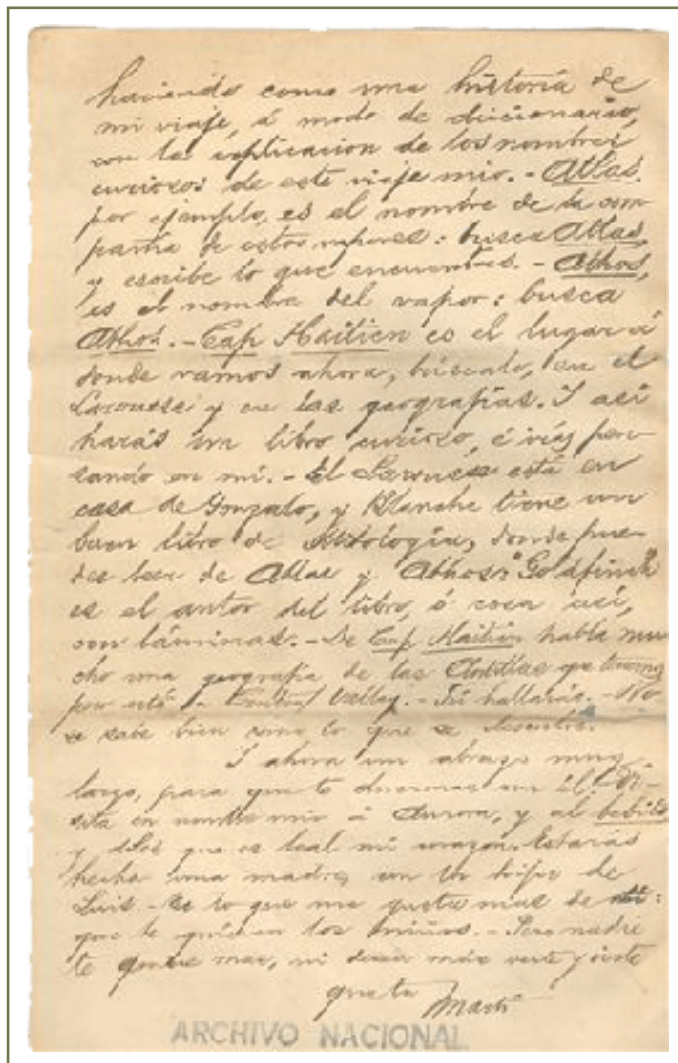 haciendo como una historia de
mi viaje, á modo de diccionario,
con la explicacion de los nombres
curiosos de este viaje mio. - Atlas,
por ejemplo, es el nombre de la com
pañia de estos vapores: busca Atlas,
y escribe lo que encuentres. - Athos,
es el nombre del vapor: busca
Athos. - Cap Haitien es el lugar á
donde vamos ahora, búscalo, en el
Larousse y en las geografías. Y así
harás un libro curioso, é irás pen-
sando en mí. - El Larousse está en
casa de Gonzalo, y Blanche tiene un
buen libro de Mitología, donde pue-
des leer de Atlas y Athos: Goldfinch
es el autor del libro, ó cosa así,
con láminas. - De Cap Haitien habla mu
cho una geografía de las Antillas que
por Central Valley. - Tú hallarás. - No
se sabe bien sino lo que se descubre.
Y ahora un abrazo muy
largo, para que te duermas en él.
en nombre mio á Aurora, y al bebé
y que es leal mi corazon. Estarás
hecha una madre, con los hijos de
Luis. - Es lo que me gusta más de
que te quieran los niños. - Pero nadie
te quiere mas, ni desea más verte
que tu Martí
ARCHIVO NACIONAL